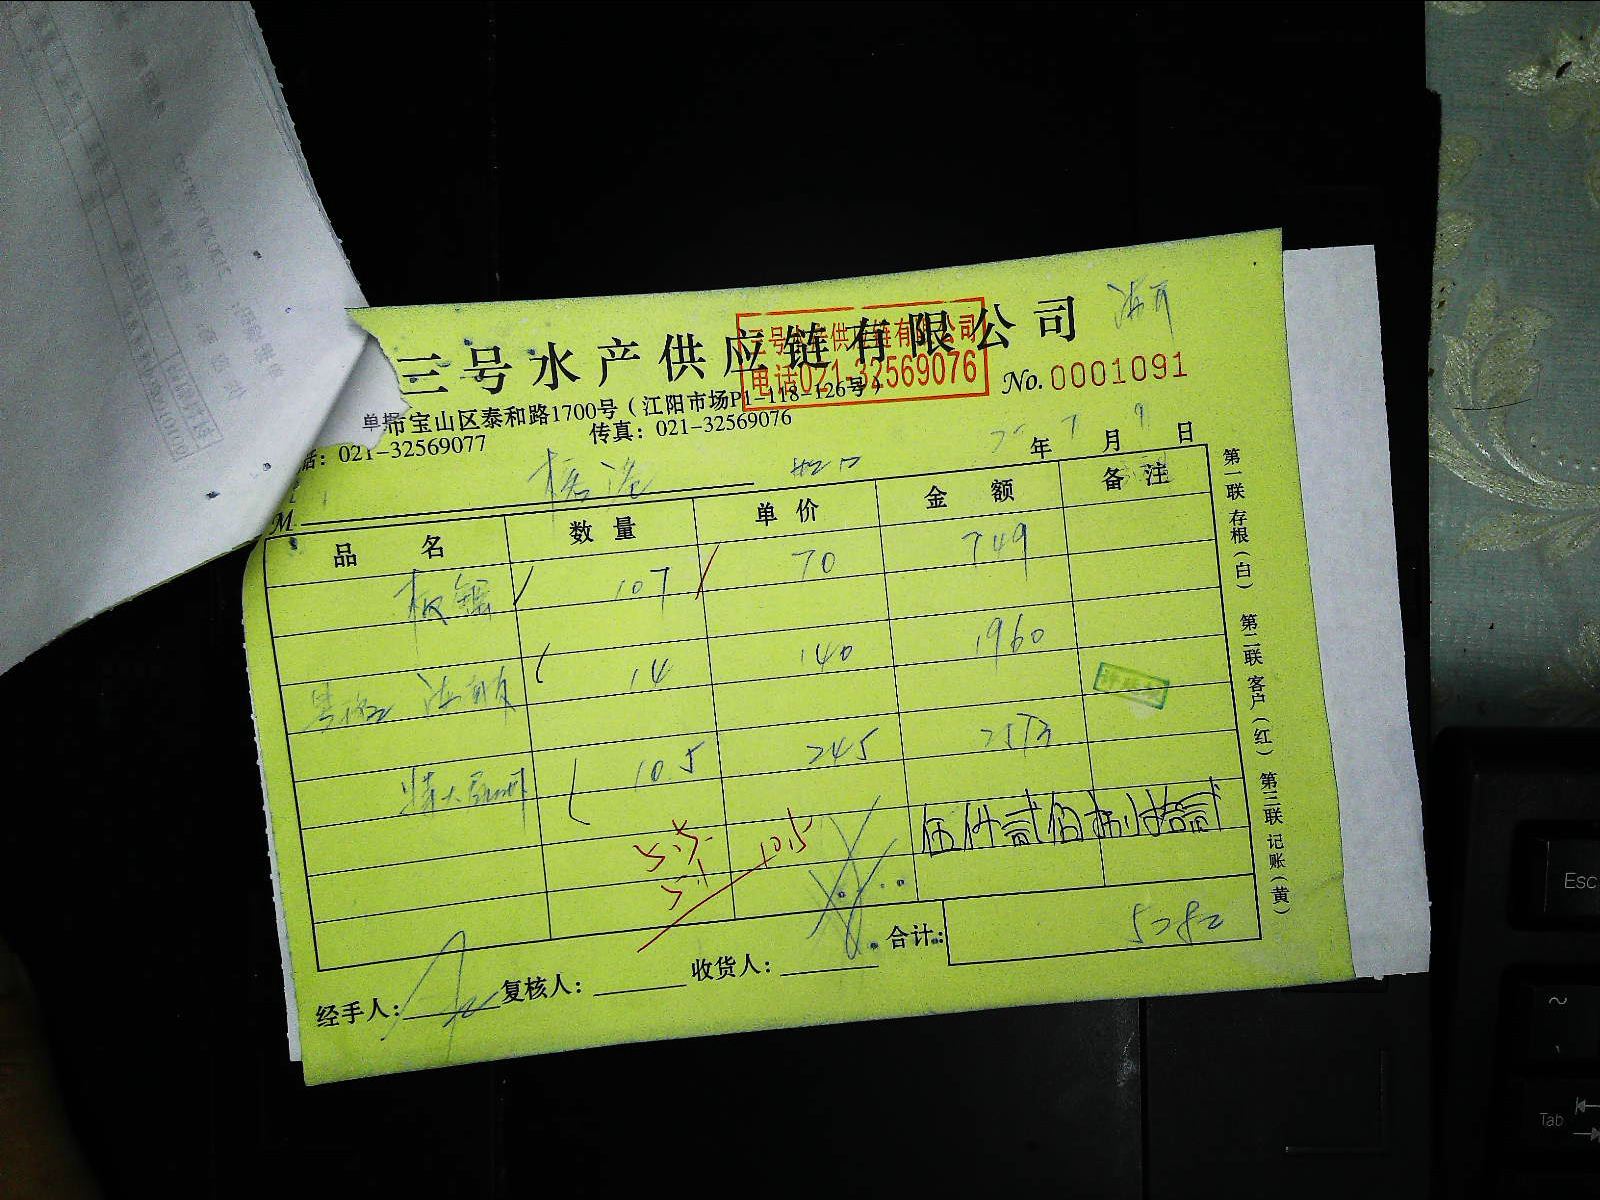 三号水产供应链有限公司
三号水产供应链有限公司
电话021-32569076
No.0001091
市宝山区泰和路1700号（江阳市场P1-118-126号）
话：021-32569077 传真：021-32569076
年 7 月 9 日
M
品名 数量 单价 金额 备注
板 107 70 749
14 140 1960
特大 10.5 245 2573
5.5
5.1
10.5
伍仟贰佰捌拾贰
合计: 5282
经手人: 复核人: 收货人:
第一联 存根（白） 第二联 客户（红） 第三联 记账（黄）
Esc
~
Tab